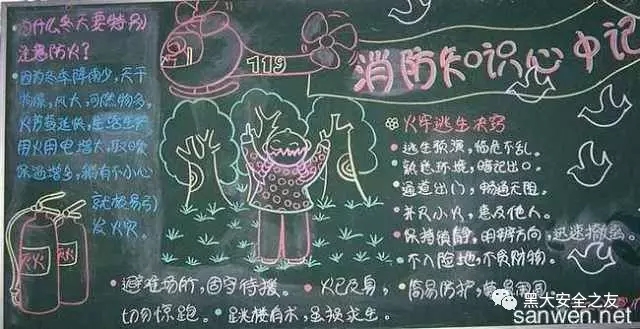 为什么冬天要特别
注意防火?
因为冬季降雨少,天干
物燥,风大,可燃物多,
火势蔓延快,
用火用电增大,取暖
保温增多,稍有不小心
就极易引
发火灾。
119
消防知识心中记
火灾逃生决窍
逃生预演,临危不乱。
熟悉环境,暗记出口。
通道出门,畅通无阻。
扑灭小火,惠及他人。
保持镇静,明辨方向,迅速撤离。
不入险地,不贪财物。
避难场所,固守待援。
火已及身,
切勿惊跑。
跳楼有术,虽损求生。
灭火
灭火
黑大安全之友
sanwen.net